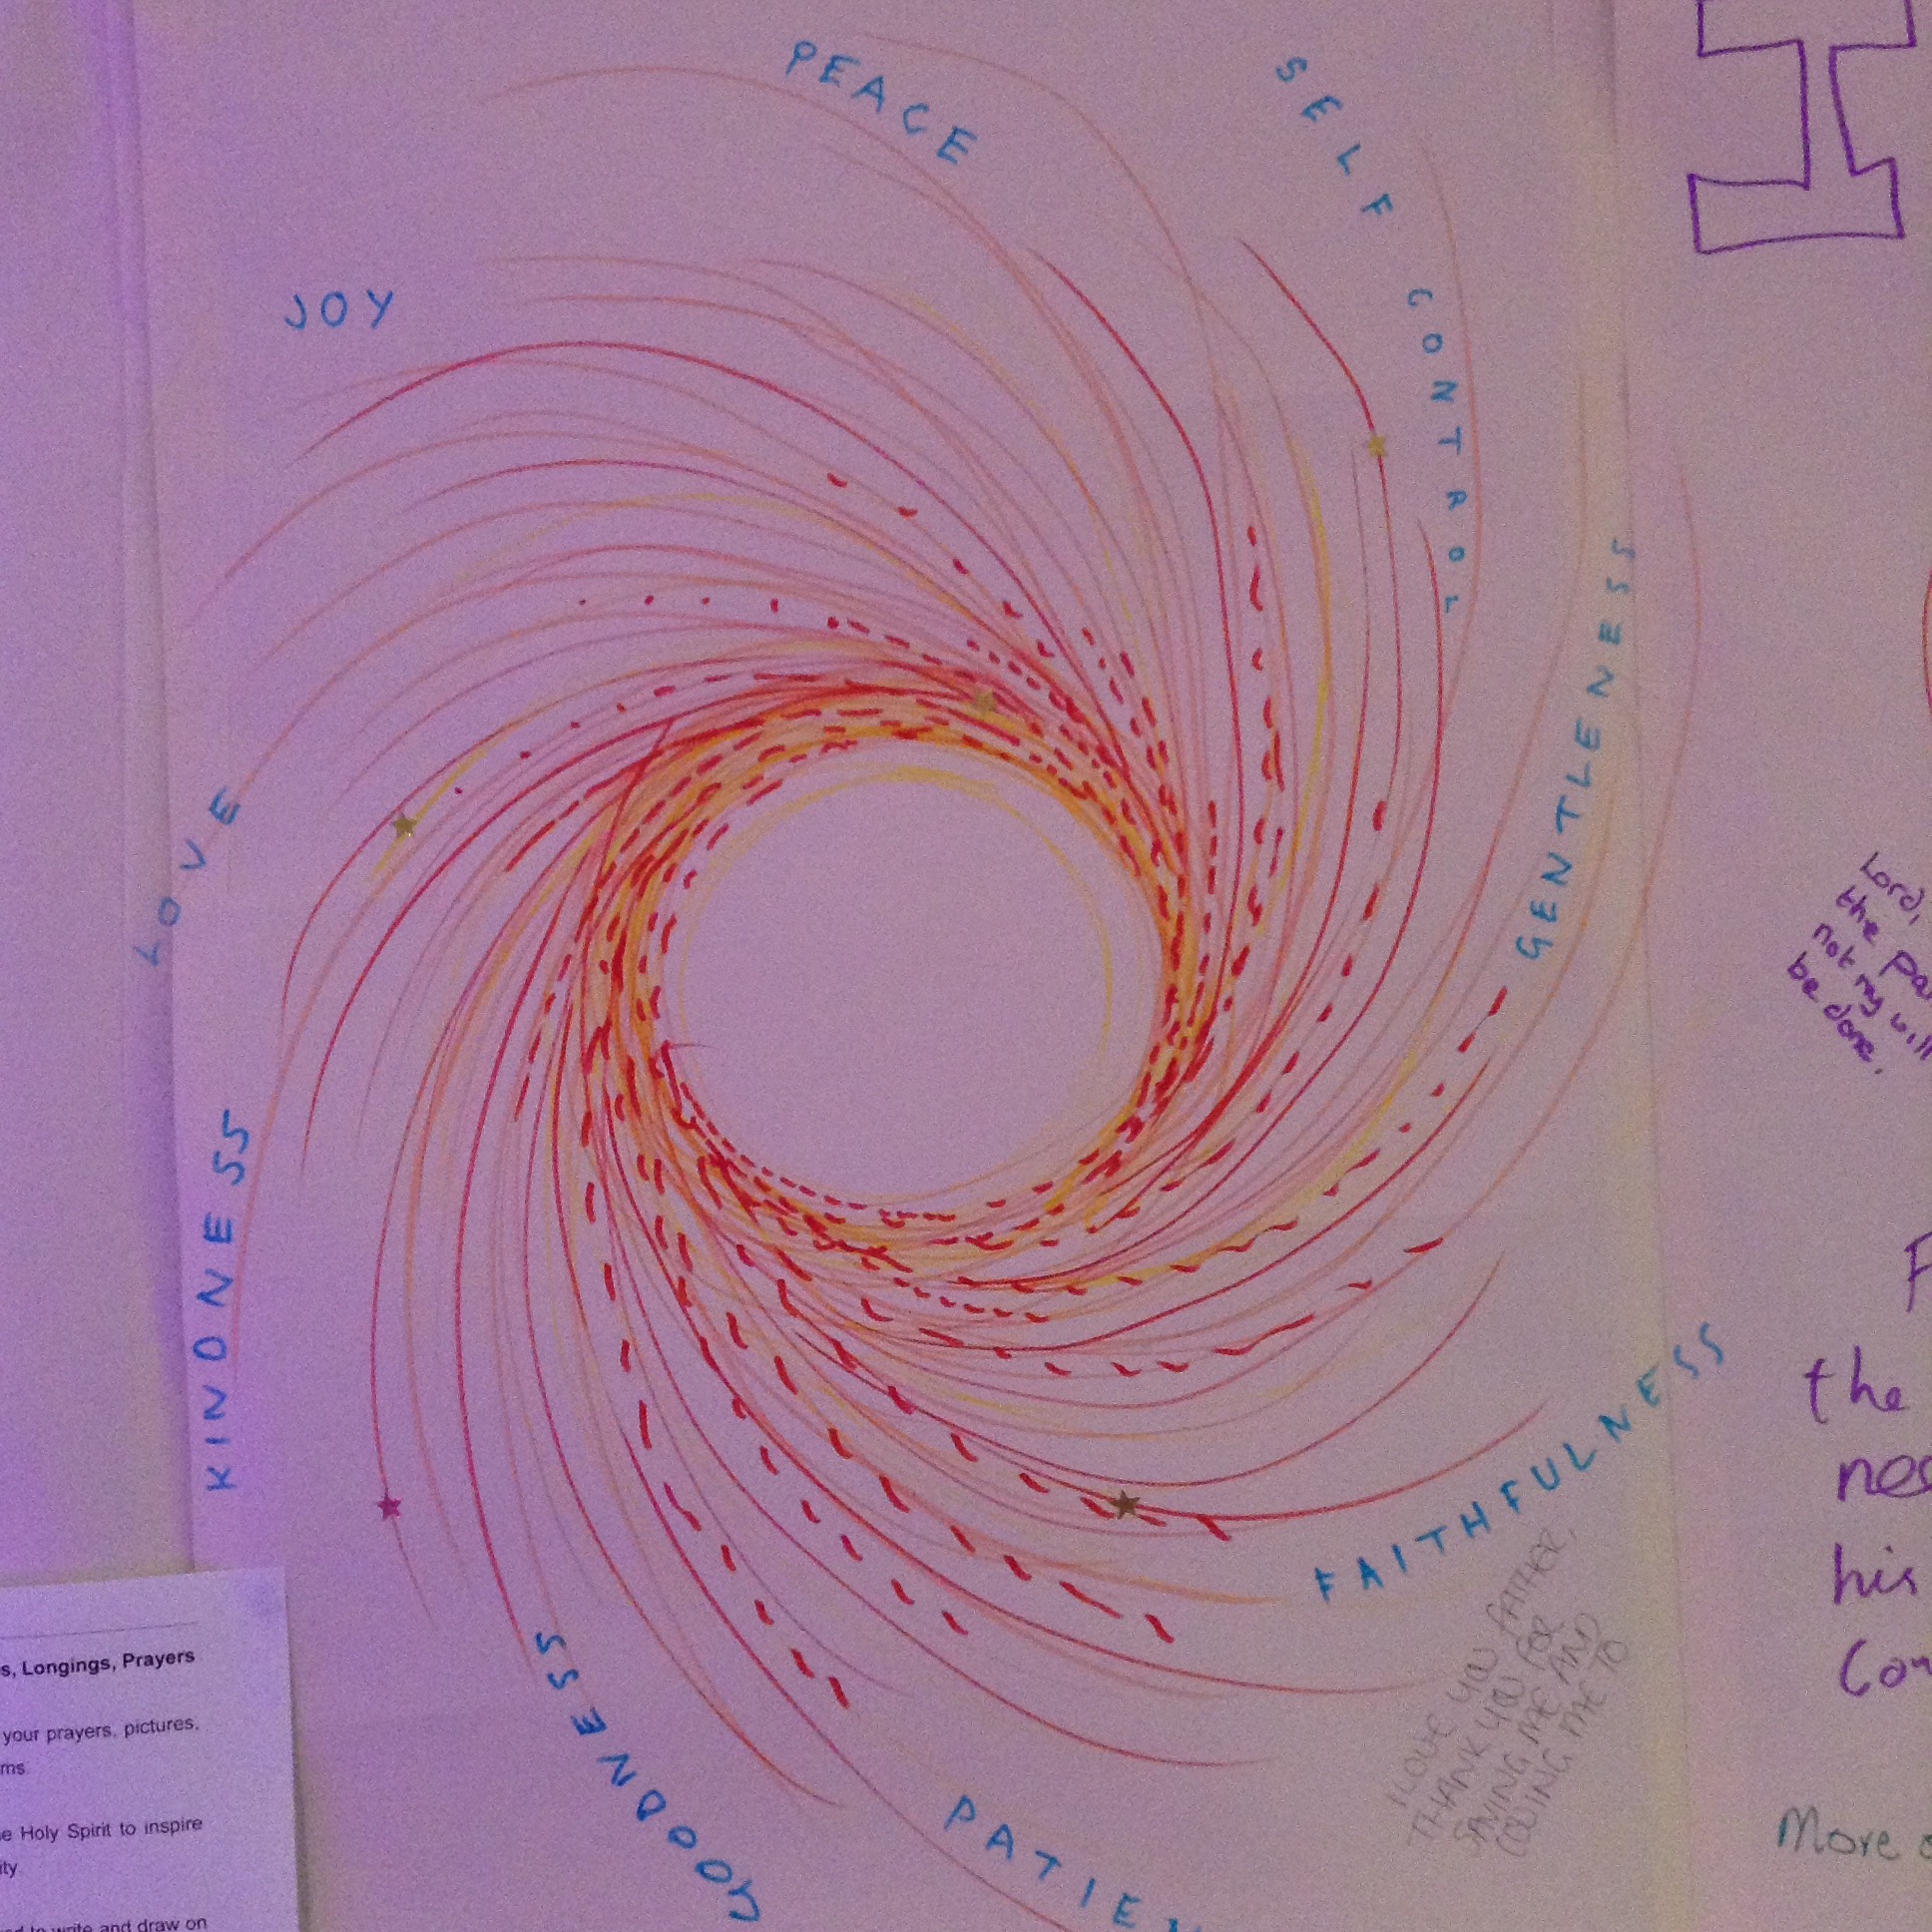 PEACE
SELF CONTROL
JOY
GENTLENESS
LOVE
KINDNESS
FAITHFULNESS
GOODNESS
PATIEN
I LOVE YOU FATHER,
THANK YOU FOR
SAVING ME AND
LOVING ME TO
Lord,
the
not my will
be done.
the
his
More
s, Longings, Prayers
your prayers, pictures,
ms
e Holy Spirit to inspire
ity
ed to write and draw on